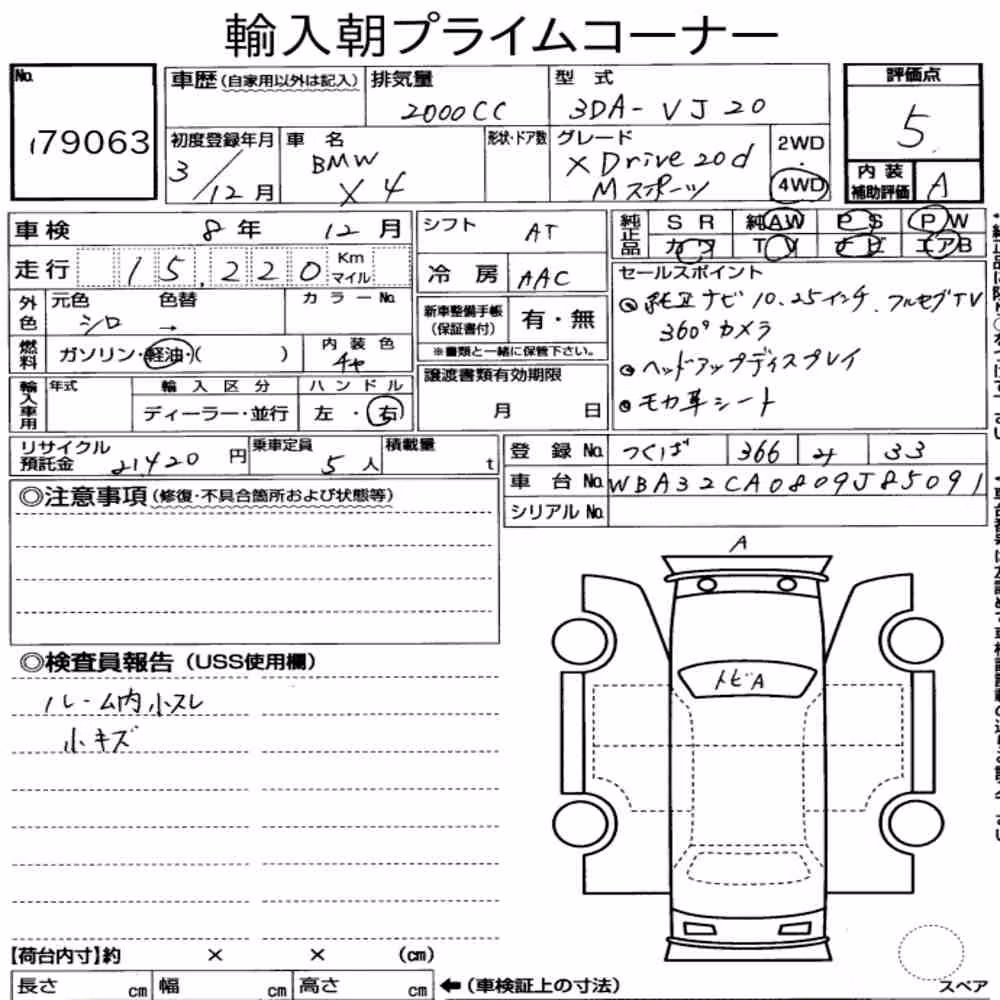 輸入朝プライムコーナー
No. 179063
車歴(自家用以外は記入) 排気量 2000CC 型式 3DA-VJ20
評価点 5
初度登録年月 3/12月 車名 BMW X4 形状・ドア数 グレード XDrive20d Mスポーツ 2WD・4WD
内装補助評価 A
車検 8年 12月
シフト AT
純正品 SR 純AW PS PW
カワ TV ナビ エアB
走行 15,220 Km マイル
冷房 AAC
セールスポイント
純正ナビ 10.25インチ フルセグTV
360°カメラ
ヘッドアップディスプレイ
モカ革シート
外色 元色 シロ 色替 → カラーNo.
新車整備手帳(保証書付) 有・無
※書類と一緒に保管下さい。
燃料 ガソリン・軽油・( ) 内装色 チャ
譲渡書類有効期限 月 日
輸入車用 年式 輸入区分 ディーラー・並行 ハンドル 左・右
リサイクル預託金 21420円 乗車定員 5人 積載量 t
登録No. つくば 366 33
車台No. WBA32CA0809J85091
シリアルNo.
◎注意事項(修復・不具合箇所および状態等)
A
トビA
◎検査員報告(USS使用欄)
ルーム内小スレ
小キズ
【荷台内寸】約 × × (cm)
長さ cm 幅 cm 高さ cm ←(車検証上の寸法)
スペア